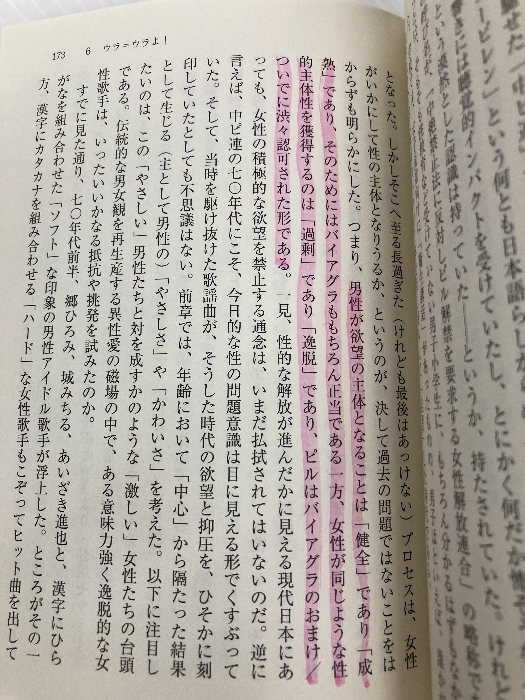 173　6　ウラ=ウラよ！
となった。しかしそこへ至る長過ぎた（けれども最後はあっけない）プロセスは、女性
がいかにして性の主体となりうるか、というのが、決して過去の問題ではないことをは
からずも明らかにした。つまり、男性が欲望の主体となることは「健全」であり「成
熟」であり、そのためにはバイアグラももちろん正当である一方、女性が同じような性
的主体性を獲得するのは「過剰」であり「逸脱」であり、ピルはバイアグラのおまけ／
ついでに渋々認可された形である。一見、性的な解放が進んだかに見える現代日本にあ
っても、女性の積極的な欲望を禁止する通念は、いまだ払拭されてはいないのだ。逆に
言えば、中ピ連の七〇年代にこそ、今日的な性の問題意識は目に見える形でくすぶって
いた。そして、当時を駆け抜けた歌謡曲が、そうした時代の欲望と抑圧を、ひそかに刻
印していたとしても不思議はない。前章では、年齢において「中心」から隔たった結果
として生じる（主として男性の）「やさしさ」や「かわいさ」を考えた。以下に注目し
たいのは、この「やさしい」男性たちと対を成すかのような「激しい」女性たちの台頭
である。伝統的な男女観を再生産する異性愛の磁場の中で、ある意味力強く逸脱的な女
性歌手は、いったいいかなる抵抗や挑発を試みたのか。
すでに見た通り、七〇年代前半、郷ひろみ、城みちる、あいざき進也と、漢字にひら
がなを組み合わせた「ソフト」な印象の男性アイドル歌手が浮上した。ところがその一
方、漢字にカタカナを組み合わせる「ハード」な女性歌手もこぞってヒット曲を出して